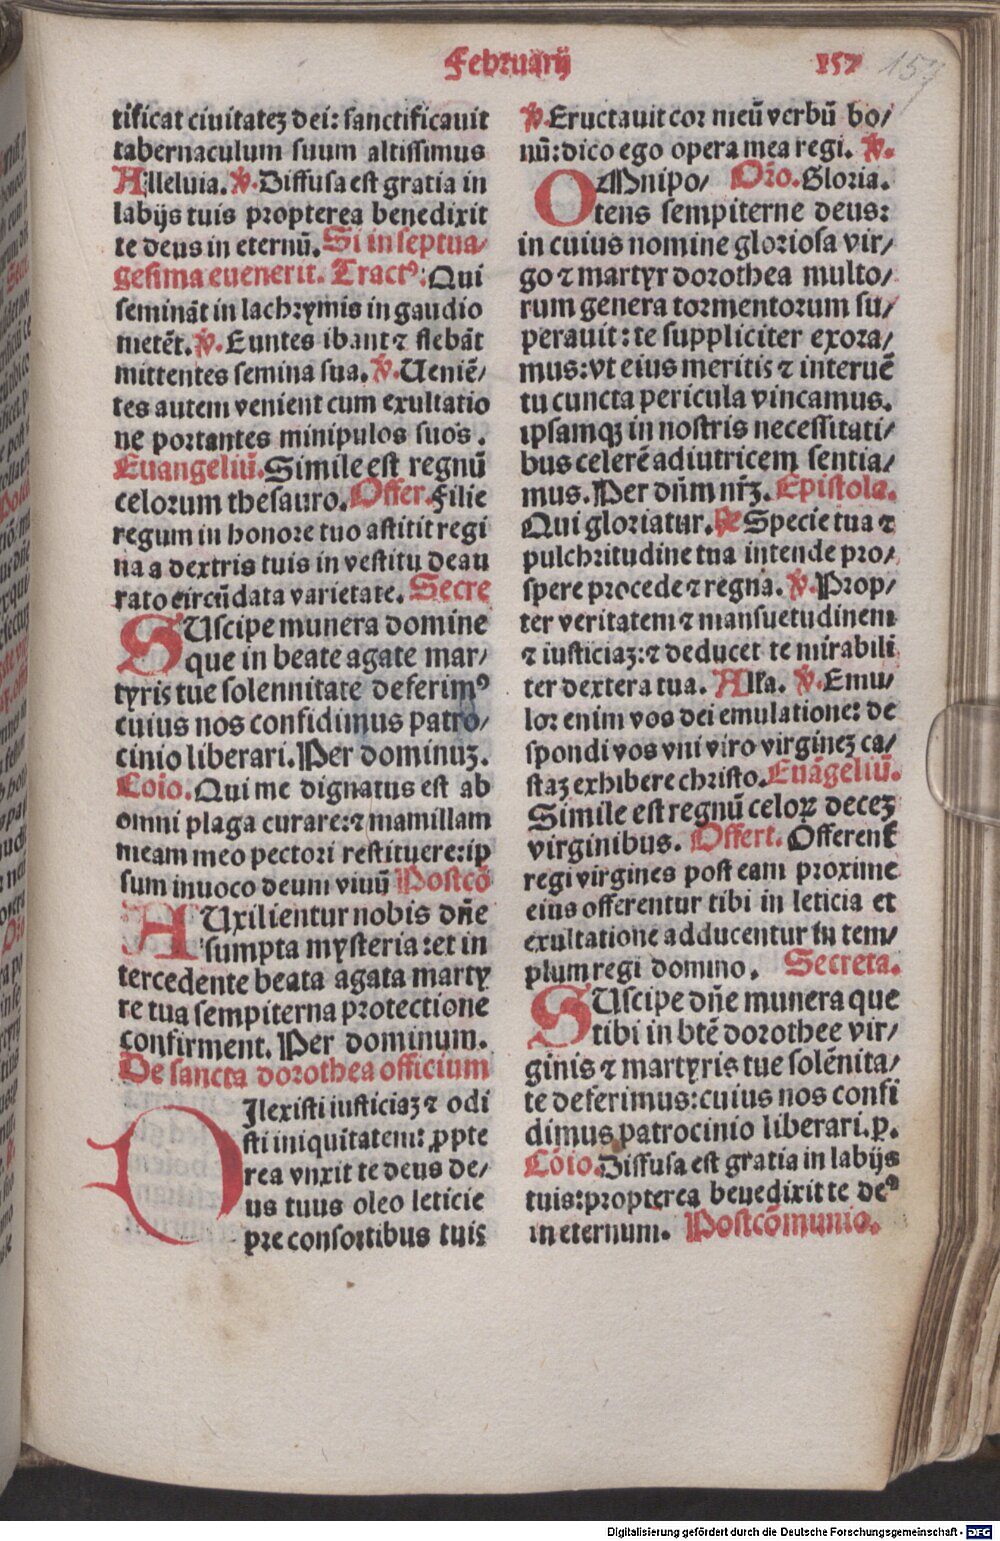 Februarij
157
157
tificat ciuitatez dei: sanctificauit
tabernaculum suum altissimus
Alleluia. ℣. Diffusa est gratia in
labijs tuis propterea benedixit
te deus in eternū. Si in septua/
gesima euenerit. Tractꝰ: Qui
semināt in lachrymis in gaudio
metēt. ℣. Euntes ibant ⁊ flebāt
mittentes semina sua. ℣. Ueniē/
tes autem venient cum exultatio
ne portantes minipulos suos.
Euangeliū. Simile est regnū
celorum thesauro. Offer. Filie
regum in honore tuo astitit regi
na a dextris tuis in vestitu deau
rato circūdata varietate. Secre
SUscipe munera domine
que in beate agate mar/
tyris tue solennitate deferimꝰ
cuius nos confidimus patro/
cinio liberari. Per dominuz.
Coīo. Qui me dignatus est ab
omni plaga curare: ⁊ mamillam
meam meo pectori restituere: ip
sum inuoco deum viuū Postcō
AUxilientur nobis dn̄e
sumpta mysteria: et in
tercedente beata agata marty
re tua sempiterna protectione
confirment. Per dominum.
De sancta dorothea officium
DJlexisti iusticiaz ⁊ odi
sti iniquitatem: ꝓpte
rea vnxit te deus de/
us tuus oleo leticie
pre consortibus tuis
℣. Eructauit cor meū verbū bo/
nū: dico ego opera mea regi. ℣.
OMnipo/ Orō. Gloria.
tens sempiterne deus:
in cuius nomine gloriosa vir/
go ⁊ martyr dorothea multo/
rum genera tormentorum su/
perauit: te suppliciter exora/
mus: vt eius meritis ⁊ interuē
tu cuncta pericula vincamus.
ipsamqꝫ in nostris necessitati/
bus celerē adiutricem sentia/
mus. Per dn̄m nr̄ꝫ. Epistola.
Qui gloriatur. ℟ Specie tua ⁊
pulchritudine tua intende pro/
spere procede ⁊ regna. ℣. Prop/
ter veritatem ⁊ mansuetudinem
⁊ iusticiaz: ⁊ deducet te mirabili
ter dextera tua. Alla. ℣. Emu/
lor enim vos dei emulatione: de
spondi vos vni viro virginez ca/
staz exhibere christo. Euāgeliū.
Simile est regnū celoꝝ decez
virginibus. Offert. Offerent
regi virgines post eam proxime
eius offerentur tibi in leticia et
exultatione adducentur in tem/
plum regi domino. Secreta.
SUscipe dn̄e munera que
tibi in btē dorothee vir/
ginis ⁊ martyris tue solēnita/
te deferimus: cuius nos confi
dimus patrocinio liberari. p.
Cōio. Diffusa est gratia in labijs
tuis: propterea benedixit te deꝰ
in eternum. Postcōmunio.
Digitalisierung gefördert durch die Deutsche Forschungsgemeinschaft - DFG